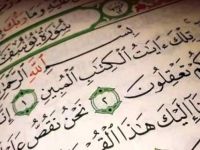 عليه وما ر
سورة يوسف
بسم الله الرحمن
تلك ءايت الكتب المبين ١
كم تعقلون ٢ نحن نقص
نا إليك هذا القر